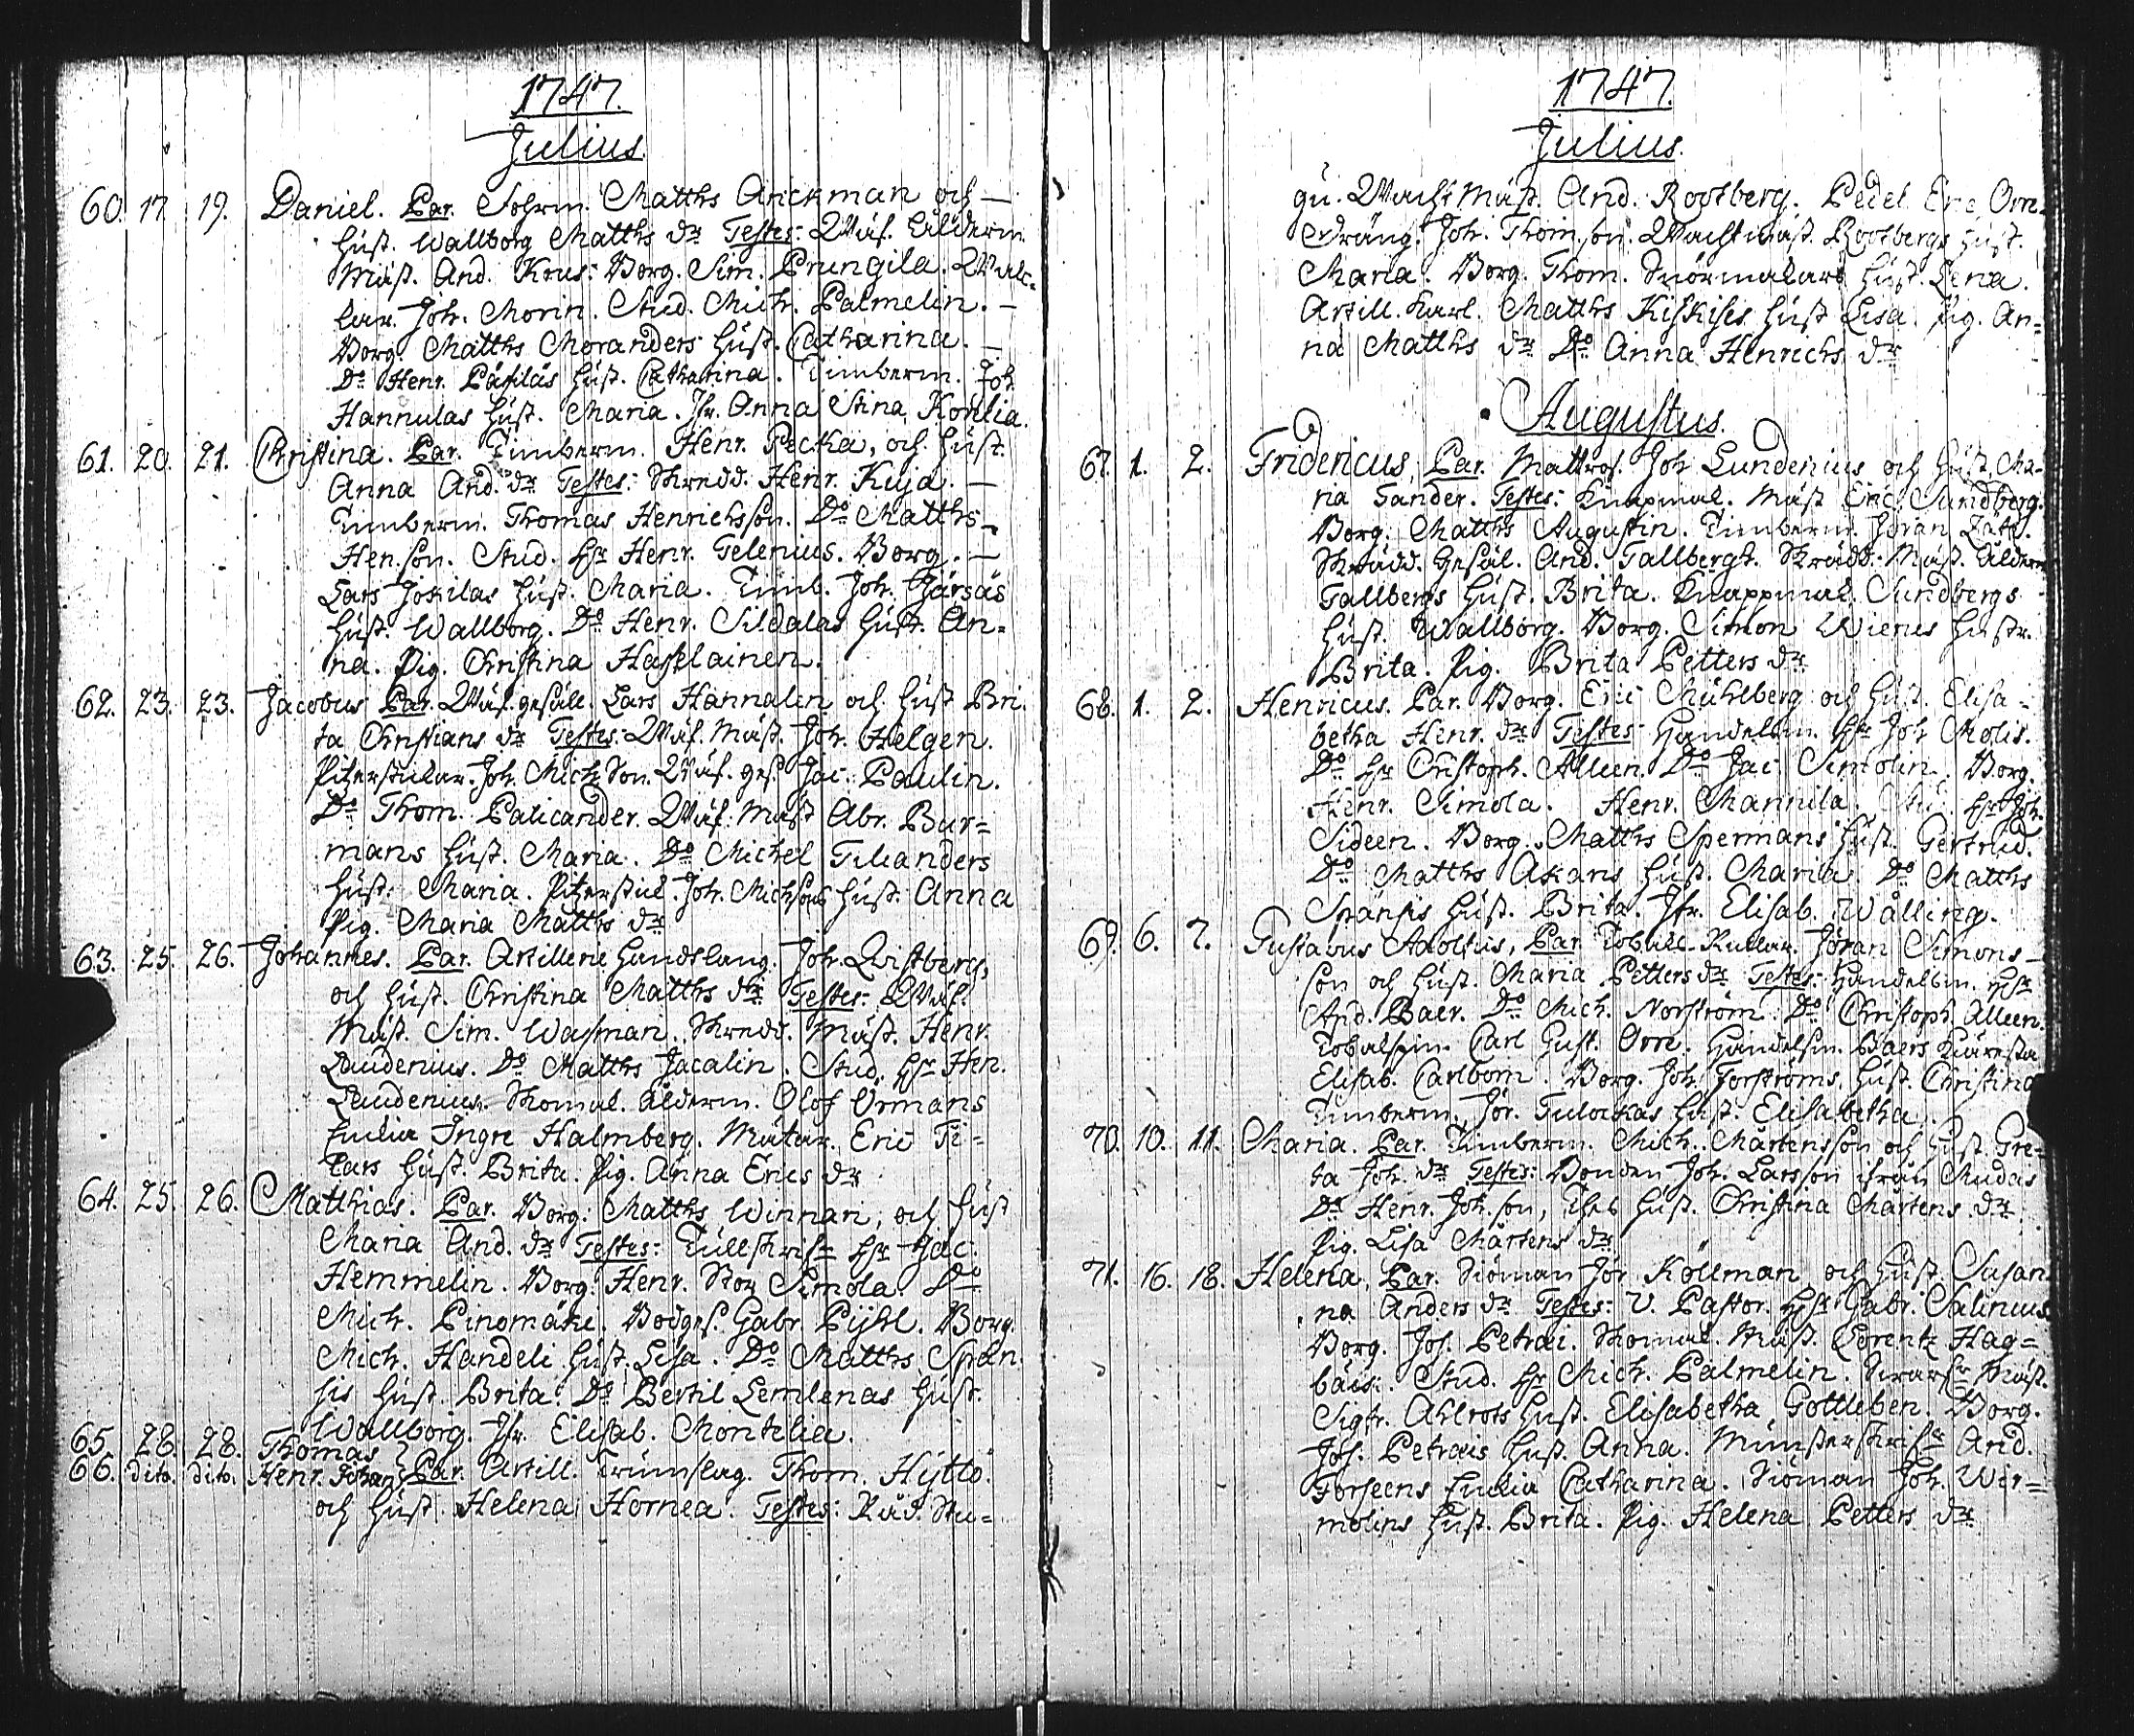 1747.
Julius.
60. 17. 19. Daniel. Par. Sohrm. Matths Arickman och —
Hust. Wallborg Matths dr Testes: Wäf. Ålderm.
Mäst. And. Krus: Borg. Sim. Prungila. Wak-
lar. Joh. Morin. Stud. Mich. Palmelin. —
Borg. Matths Moranders Hust. Catharina. —
Do Henr. Päsiläs Hust. Catharina. Timberm. Joh.
Hannulas Hust. Maria. Jfr. Anna Stina Konlia.
61. 20. 21. Christina. Par. Timberm. Henr. Pecka, och Hust.
Anna And. dr Testes: Skredd. Henr. Kilja. —
Timberm. Thomas Henrichsson. Do Matths
Hen.son. Stud. Hr Henr. Gelenius. Borg. —
Lars Joskilas Hust. Maria. Timb. Joh. Hjärsäs
Hust. Wallborg. Do Henr. Sildalas Hust. An=
na. Pig. Christina Hasselainen.
62. 23. 23. Jacobus Par. Wäf. gesäll. Lars Hannalen och Hust Bri-
ta Christians dr Testes: Wäf. Mäst. Joh. Helgen.
Joh. Mich.Son. Wäf. ges. Jac. Paulin.
Do Thom. Palicander. Wäf. Mäst Abr. Bur=
mans Hust. Maria. Do Michel Tilianders
Hust. Maria. Joh. Michsons Hust. Anna
Pig. Maria Matths dr
63. 25. 26. Johannes. Par. Artillerie Handtlang. Joh. Qvistberg,
och Hust. Christina Matths dr Testes: Wäf.
Mäst. Sim. Wasman. Skredd. Mäst. Henr.
Laudenius. Do Matths Jacalin. Stud. Hr Hen.
Laudenius. Skomak. Ålderm. Olof Örmans
Enkia Ingre Halmberg. Mätar. Eric Ti=
lars Hust. Brita. Pig. Anna Erics dr
64. 25. 26. Matthias. Par. Borg. Matths Winnari, och Hust
Maria And. dr Testes: Tullskrifr Hr Jac.
Hemmelin. Borg. Henr. Stor Simola. Do
Mich. Pinomäki. Bodges. Gabr. Pijhl. Borg.
Mich. Handeli Hust. Lisa. Do Matths Spän-
sis Hust. Brita. Do Bertil Lemlenas Hust.
Wallborg. Jfr. Elisab. Montelia.
65. 28. 28. Thomas
66. dito. dito. Henr. Johan Par. Artill. Trumslag. Thom. Hÿttö
och Hust. Helena Hornea. Testes: Råd. Stu=
1747.
Julius.
gu. Wacht Mäst. And. Rootberg. Pedel Eric Orn.
Dräng. Joh. Thom.son. Wachtmäst. Rootbergs Hust.
Maria. Borg. Thom. Snörmakars Hust. Lena.
Artill. Karl. Matths Kiskises Hust Lisa. Pig. An=
na Matths dr Do Anna Henrichs dr
Augustus.
67. 1. 2. Fridericus, Par. Mattros. Joh. Lundenius och Hust. Ma-
ria Tander. Testes: Knapmak. Mäst Eric Sundberg.
Borg. Matths Augustin. Timberm. Jöran
Skrädd. Gesäl. And. Tallbergh. Skrädd. Mäst. Ålderm
Tallbergs Hust. Brita. Knappmak. Sundbergs
Hust. Wallborg. Borg. Simon Wienes Hustr.
Brita. Pig. Brita Petters dr
68. 1. 2. Henricus. Par. Borg. Eric Mühlberg och Hust. Elisa-
betha Henr. dr Testes: Handelsm. Hr Joh. Molis.
Do Hr Christoph. Alleen. Do Jac. Simolin. Borg.
Henr. Simola. Henr. Mannila. Hr Joh.
Sideen. Borg. Matths Spermans Hust. Gertrud.
Do Matths Akans Hust. Maria. Do Matths
Spänsis Hust. Brita. Jfr. Elisab. Wålling.
69. 6. 7. Gustavus Adolfus, Par. Tobaks-Rullar. Jöran Simons-
son och Hust. Maria Petters dr Testes: Handelsm. Hr
And. Baer. Do Mich. Norström. Do Christoph. Alleen.
Tobaksspin. Carl Gust. Orre. Handelsm. Baers Käresta
Elisab. Carlbom. Borg. Joh. Forströms Hust. Christina
Timberm. Jör. Tulockas Hust. Elisabetha.
70. 10. 11. Maria. Par. Timberm. Mich. Mårtensson och Hust. Gre-
ta Joh. dr Testes: Bonden Joh. Larsson ifrån Mudas
Do Henr. Joh.son, Thes Hust. Christina Mårtens dr.
Pig. Lisa Mårtens dr
71. 16. 18. Helena, Par. Siöman Jör. Köllman och Hust. Susan
na Anders dr Testes: V. Pastor. Hr Gabr. Salinius
Borg. Jos. Petrai. Skomak. Mäst. Lorentz Hag=
bäck. Stud. Hr Mich. Palmelin. Mäst.
Sigfr. Ahlrots Hust. Elisabetha Gottleben. Borg.
Jos. Petrais Hust. Anna. Munsterskrifr And.
Forseens Enkia Catharina. Siöman Joh. Wir=
molins Hust. Brita. Pig. Helena Petters dr